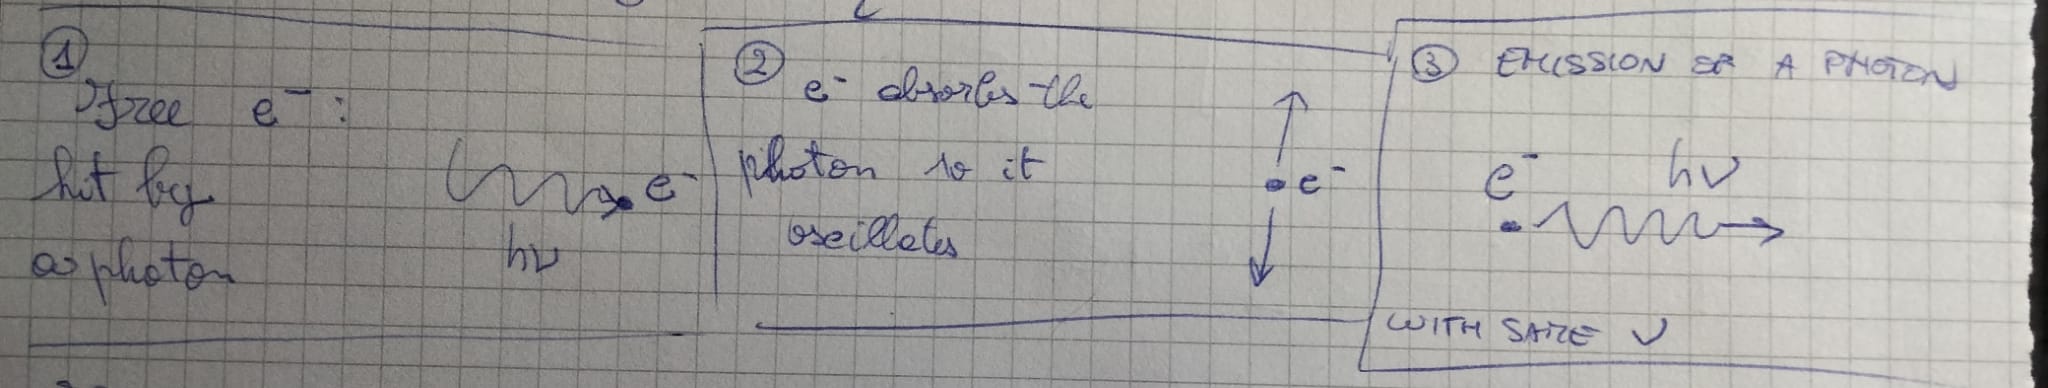 ①
free e⁻:
hit by
a photon
e⁻
hν
②
e⁻ absorbs the
photon so it
oscillates
e⁻
③ EMISSION OF A PHOTON
e⁻ hν
WITH SAME ν